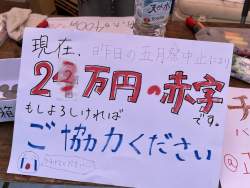 現在、昨日の五月祭中止により
22万円の赤字
です。
もしよろしければ
ご協力ください